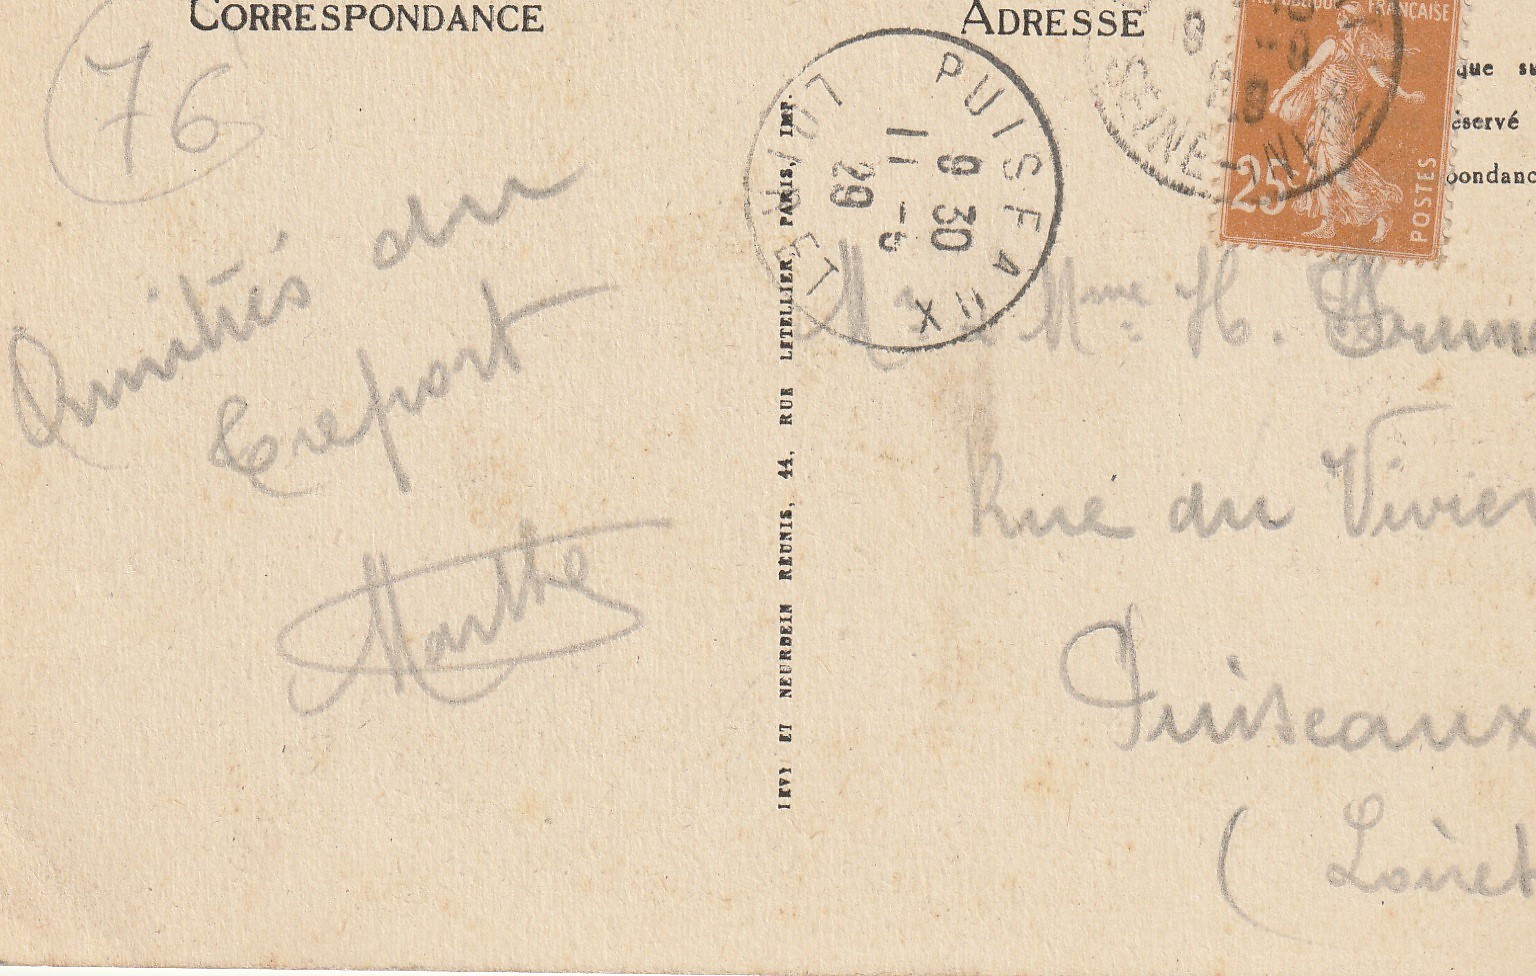 CORRESPONDANCE
76
Amitiés du
Treport
Marthe
LEVY ET NEURDEIN REUNIS, 44, RUE LETELLIER, PARIS, IMP.
ADRESSE
PUISEAUX
9 30
11 -6
29
LOIRET
SEINE-INFRE
REPUBLIQUE FRANÇAISE
25
POSTES
que su
éservé
pondanc
Mr & Mme H.
Rue du Vivier
Puiseaux
( Loiret